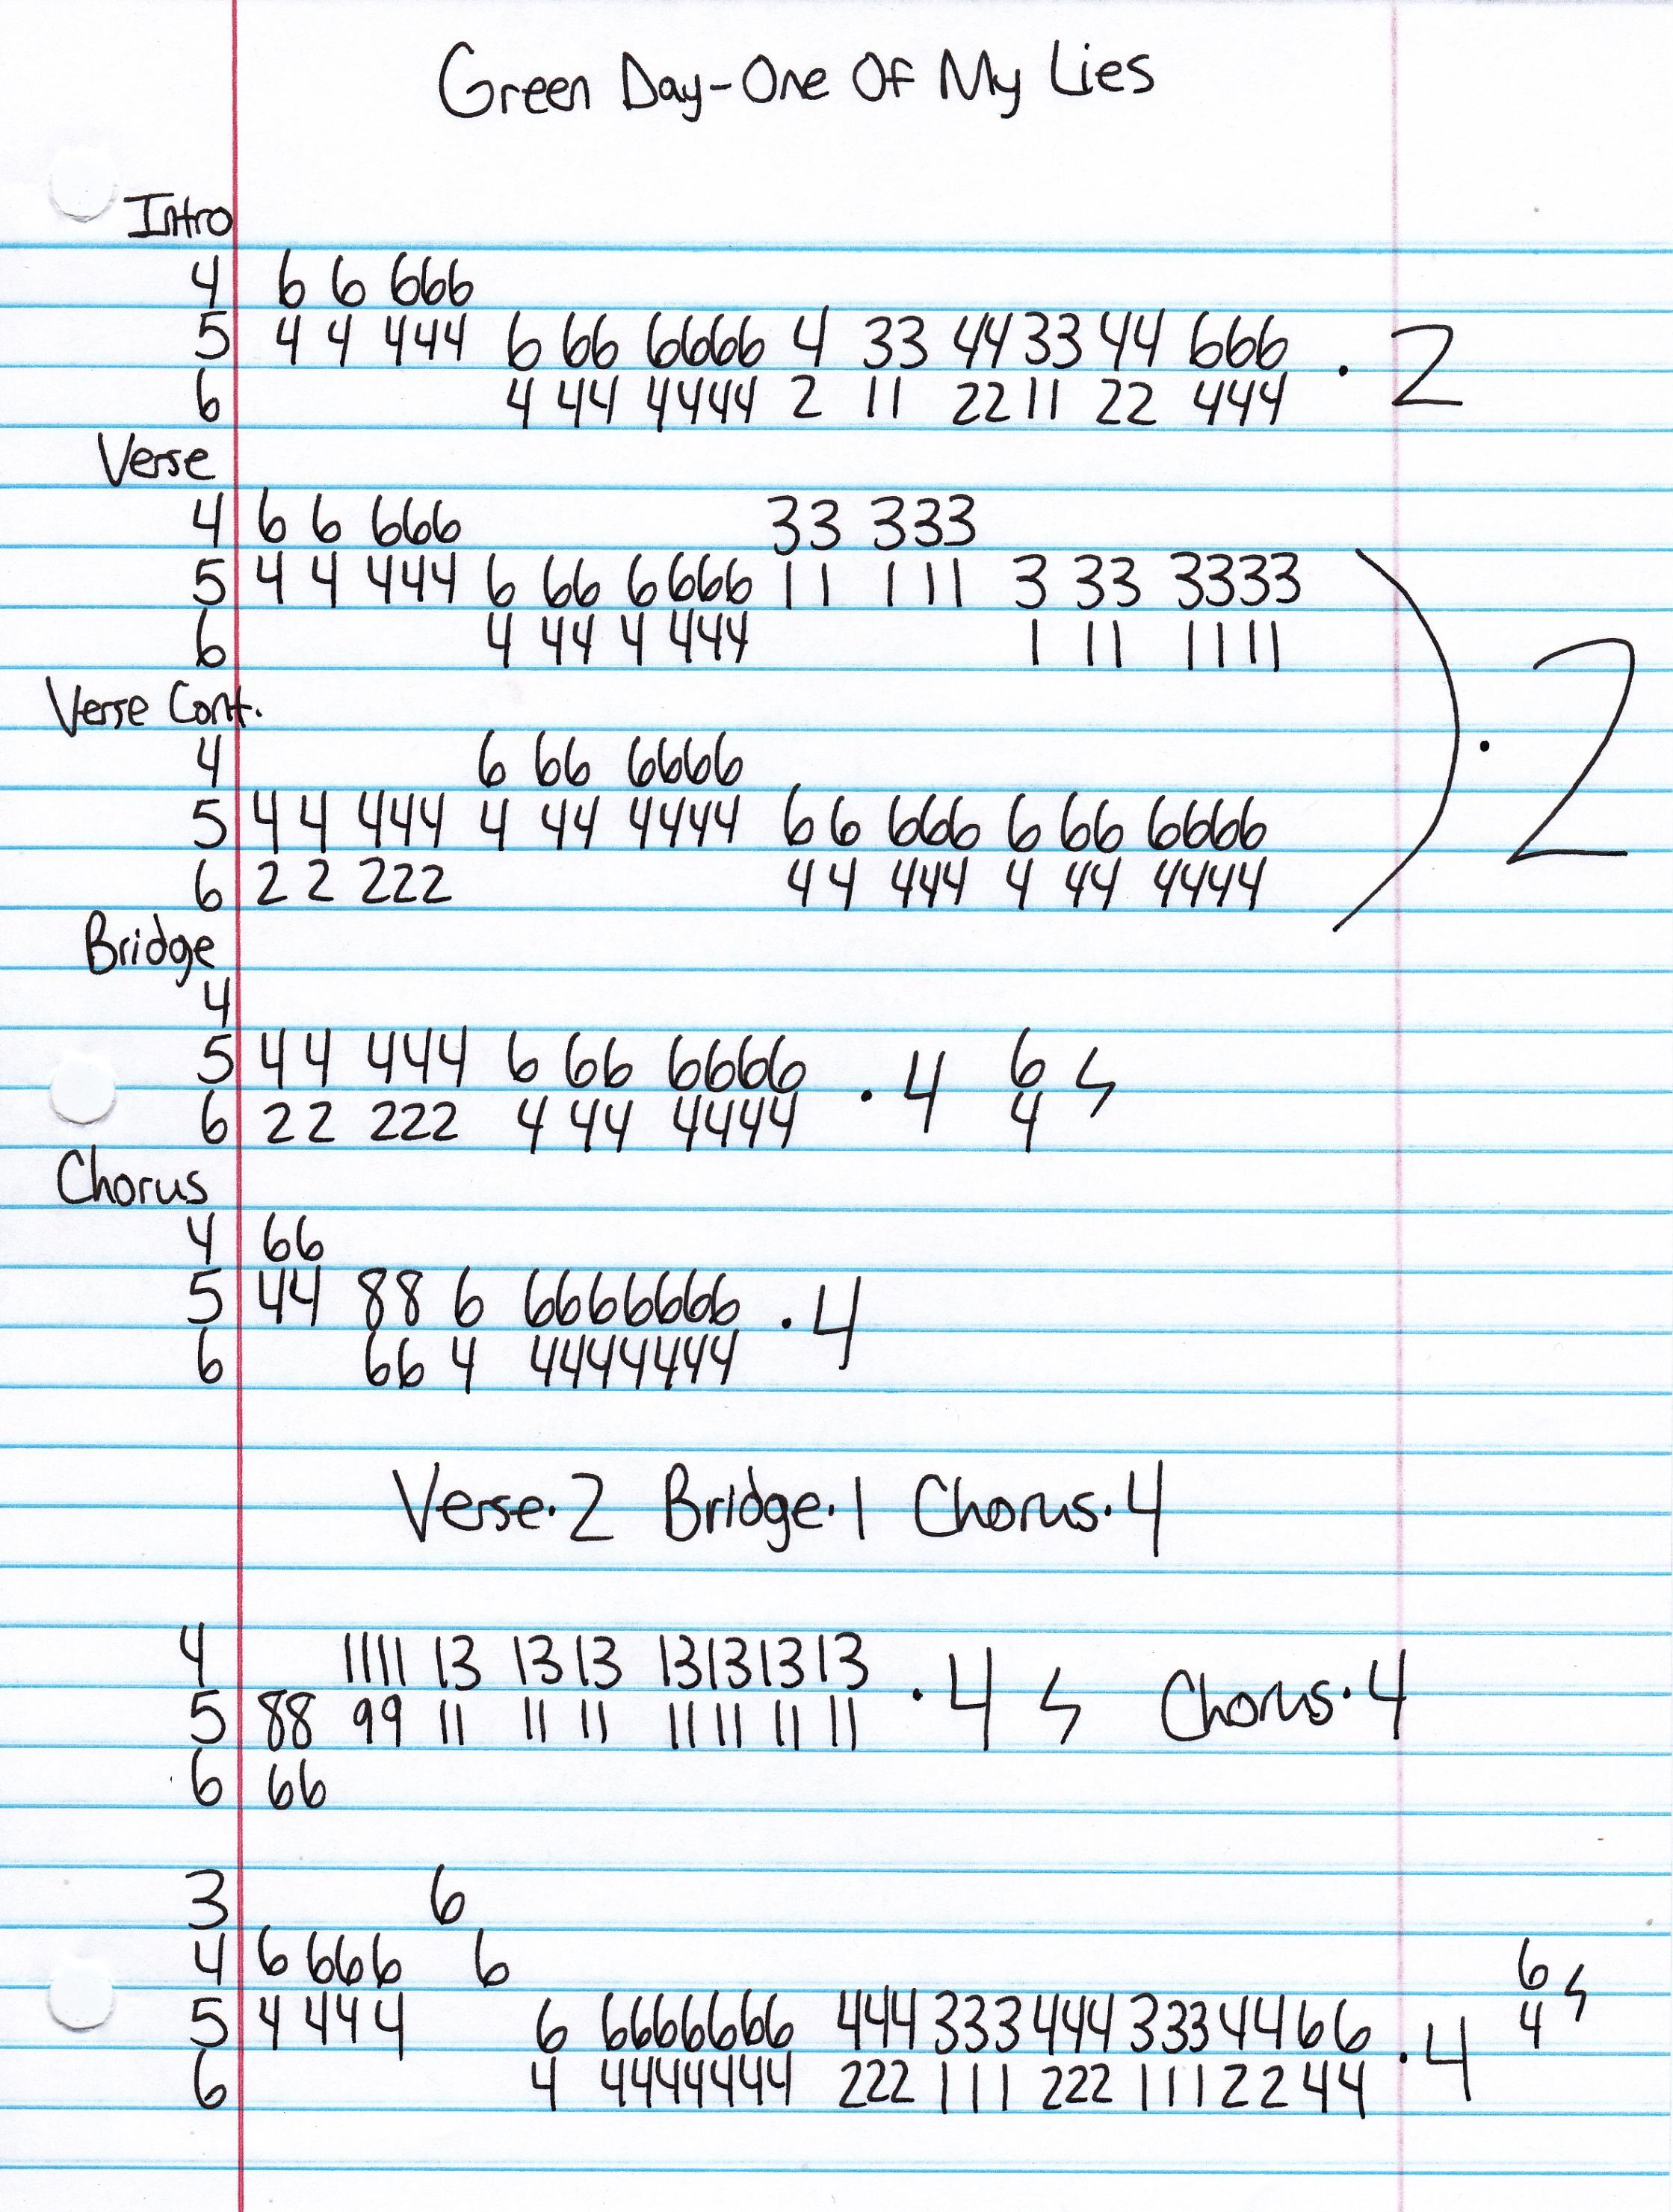 Green Day-One Of My Lies
Intro
4 6 6 666
5 4 4 444 6 66 6666 4 33 44 33 44 666 . 2
6 4 44 4444 2 11 22 11 22 444
Verse
4 6 6 666 33 333
5 4 4 444 6 66 6 666 11 111 3 33 3333
6 4 44 4 444 1 11 1111
Verse Cont.
4 6 66 6666
5 4 4 444 4 44 4444 6 6 666 6 66 6666
6 2 2 222 4 4 444 4 44 4444
) . 2
Bridge
4
5 44 444 6 66 6666 . 4 6
6 22 222 4 44 4444 4
Chorus
4 66
5 44 88 6 6666666 . 4
6 66 4 4444444
Verse.2 Bridge.1 Chorus.4
4 1111 13 13 13 13131313 . 4 Chorus.4
5 88 99 11 11 11 11 11 11 11
6 66
3 6
4 6 666 6 6
5 4 444 6 6666666 444 333 444 333 44 66 . 4 4
6 4 4444444 222 111 222 111 22 44